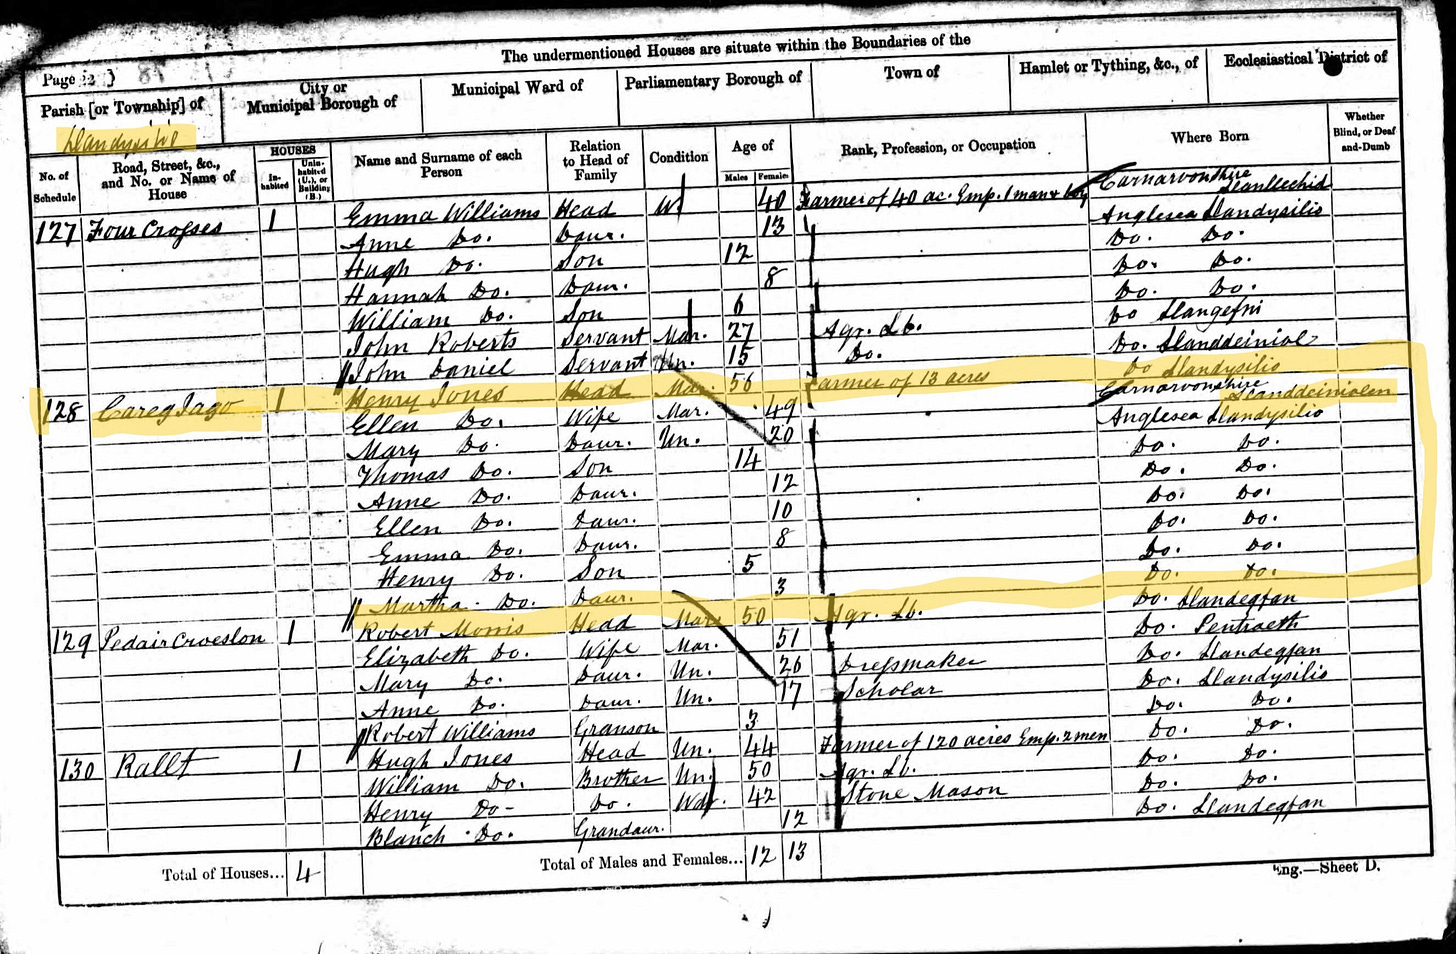 The undermentioned Houses are situate within the Boundaries of the
Page 12 }
Parish [or Township] of
City or Municipal Borough of
Municipal Ward of
Parliamentary Borough of
Town of
Hamlet or Tything, &c., of
Ecclesiastical District of
Llandysilio
No. of Schedule
Road, Street, &c., and No. or Name of House
HOUSES
In-habited
Unin-habited (U.), or Building (B.)
Name and Surname of each Person
Relation to Head of Family
Condition
Age of
Males
Females
Rank, Profession, or Occupation
Where Born
Whether Blind, or Deaf and-Dumb
127 Four Crosses 1 Emma Williams Head W 40 Farmer of 40 ac. Emp. 1 man & boy Carnarvonshire Llanllechid
Anne Do. Daur. 13 Anglesea Llandysilio
Hugh Do. Son 12 Do. Do.
Hannah Do. Daur. 8 Do. Do.
William Do. Son 6 Do. Do.
John Roberts Servant Mar. 27 Agr. Lb. Do Llangefni
John Daniel Servant Un. 15 Do. Do. Llanddeiniol
128 Careg Jago 1 Henry Jones Head Mar. 56 Farmer of 13 acres Do Llandysilio
Ellen Do. Wife Mar. 49 Carnarvonshire Llanddeiniolen
Mary Do. Daur. Un. 20 Anglesea Llandysilio
Thomas Do. Son 14 Do. Do.
Anne Do. Daur. 12 Do. Do.
Ellen Do. Daur. 10 Do. Do.
Emma Do. Daur. 8 Do. Do.
Henry Do. Son 5 Do. Do.
Martha Do. Daur. 3 Do. Do.
129 Pedair Croeslon 1 Robert Morris Head Mar. 50 Agr. Lb. Do. Llandegfan
Elizabeth Do. Wife Mar. 51 Do. Pentraeth
Mary Do. Daur. Un. 26 Dressmaker Do. Llandegfan
Anne Do. Daur. Un. 17 Scholar Do. Llandysilio
Robert Williams Granson 3 Do. Do.
130 Rallt 1 Hugh Jones Head Un. 44 Farmer of 120 acres Emp. 2 men Do. Do.
William Do. Brother Un. 50 Agr. Lb. Do. Do.
Henry Do- Do. Wdr. 42 Stone Mason Do. Do.
Blanch Do. Grandaur. 12 Do. Llandegfan
Total of Houses... 4
Total of Males and Females... 12 13
Eng.—Sheet D.